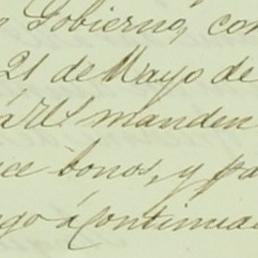 Gobierno, con
21 de Mayo de
manden
ce bonos, y pa
go á continuac